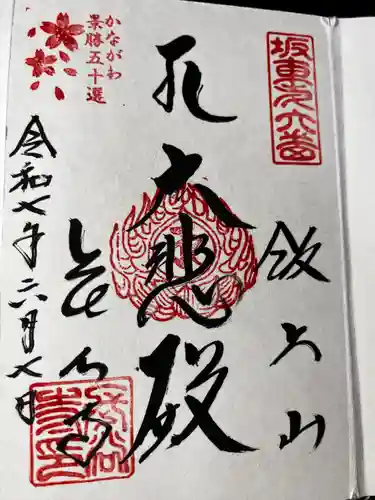 坂東第六番
飯上山
奉
大悲殿
長谷寺
かながわ
景勝五十選
令和七年六月七日